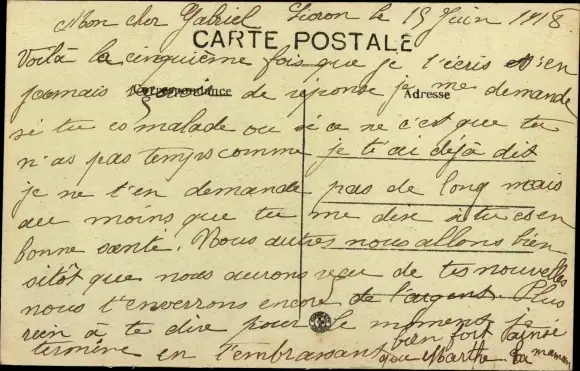 Mon cher Gabriel Lioron le 19 Juin 1918
CARTE POSTALE
Voilà la cinquième fois que je t'écris et n'en
Correspondance
Adresse
jamais de réponse je me demande
si tu es malade ou si ce ne c'est que tu
n'as pas temps comme je t'ai déjà dit
je ne t'en demande pas de long mais
au moins que tu me dise si tu es en
bonne santé. Nous autres nous allons bien
sitôt que nous aurons reçu de tes nouvelles
nous t'enverrons encore de l'argent. Plus
rien à te dire pour le moment je
termine en t'embrassant bien fort ainsi
que Marthe. Ta maman